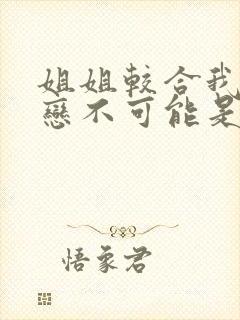 姐姐較合我
戀不可能是
悟象君